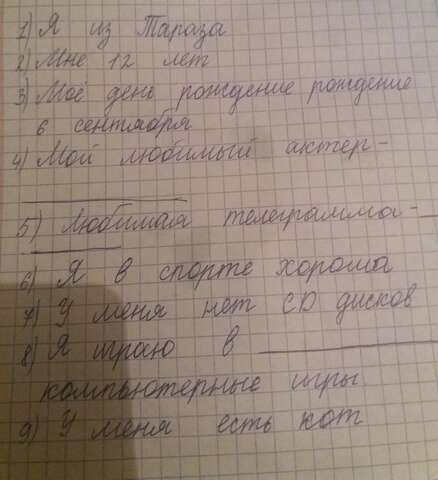 1) Я из Тараза
2) Мне 12 лет
3) Моё день рождение рождение
6 сентября
4) Мой любимый актер-
5) Любимая телеграмма-
6) Я в спорте хороша
7) У меня нет CD дисков
8) Я играю в
компьютерные игры
9) У меня есть кот